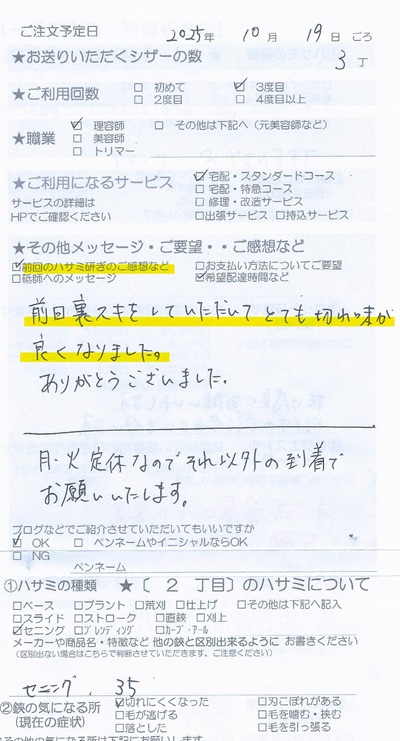 ご注文予定日 2025年 10月 19日 ごろ
★お送りいただくシザーの数 3丁
★ご利用回数 □ 初めて ☑ 3度目
□ 2度目 □ 4度目以上
★職業 ☑ 理容師 □ その他は下記へ（元美容師など）
□ 美容師
□ トリマー
★ご利用になるサービス ☑ 宅配・スタンダードコース
サービスの詳細は □ 宅配・特急コース
HPでご確認ください □ 修理・改造サービス
□出張サービス □持込サービス
★その他メッセージ・ご要望・・ご感想など
☑前回のハサミ研ぎのご感想など □お支払い方法についてご要望
□砥師へのメッセージ ☑希望配達時間など
前回裏スキをしていただいてとても切れ味が
良くなりました。
ありがとうございました。
月・火定休なのでそれ以外の到着で
お願いいたします。
ブログなどでご紹介させていただいてもいいですか
☑ OK □ ペンネームやイニシャルならOK
□ NG ペンネーム
①ハサミの種類 ★〔 2 丁目〕のハサミについて
□ベース □ブラント □荒刈 □仕上げ □その他は下記へ記入
□スライド □ストローク □直鋏 □刈上
☑セニング □ブレンディング □カーブ・アール
メーカーや商品名・特徴など 他の鋏と区別出来るように お書きください
（区別出ない場合はこちらで判断させていただきます、ご注意ください）
セニング、35
②鋏の気になる所 ☑切れにくくなった □刃こぼれがある
（現在の症状） □毛が逃げる □毛を噛む・挟む
□落とした □毛を引っ張る